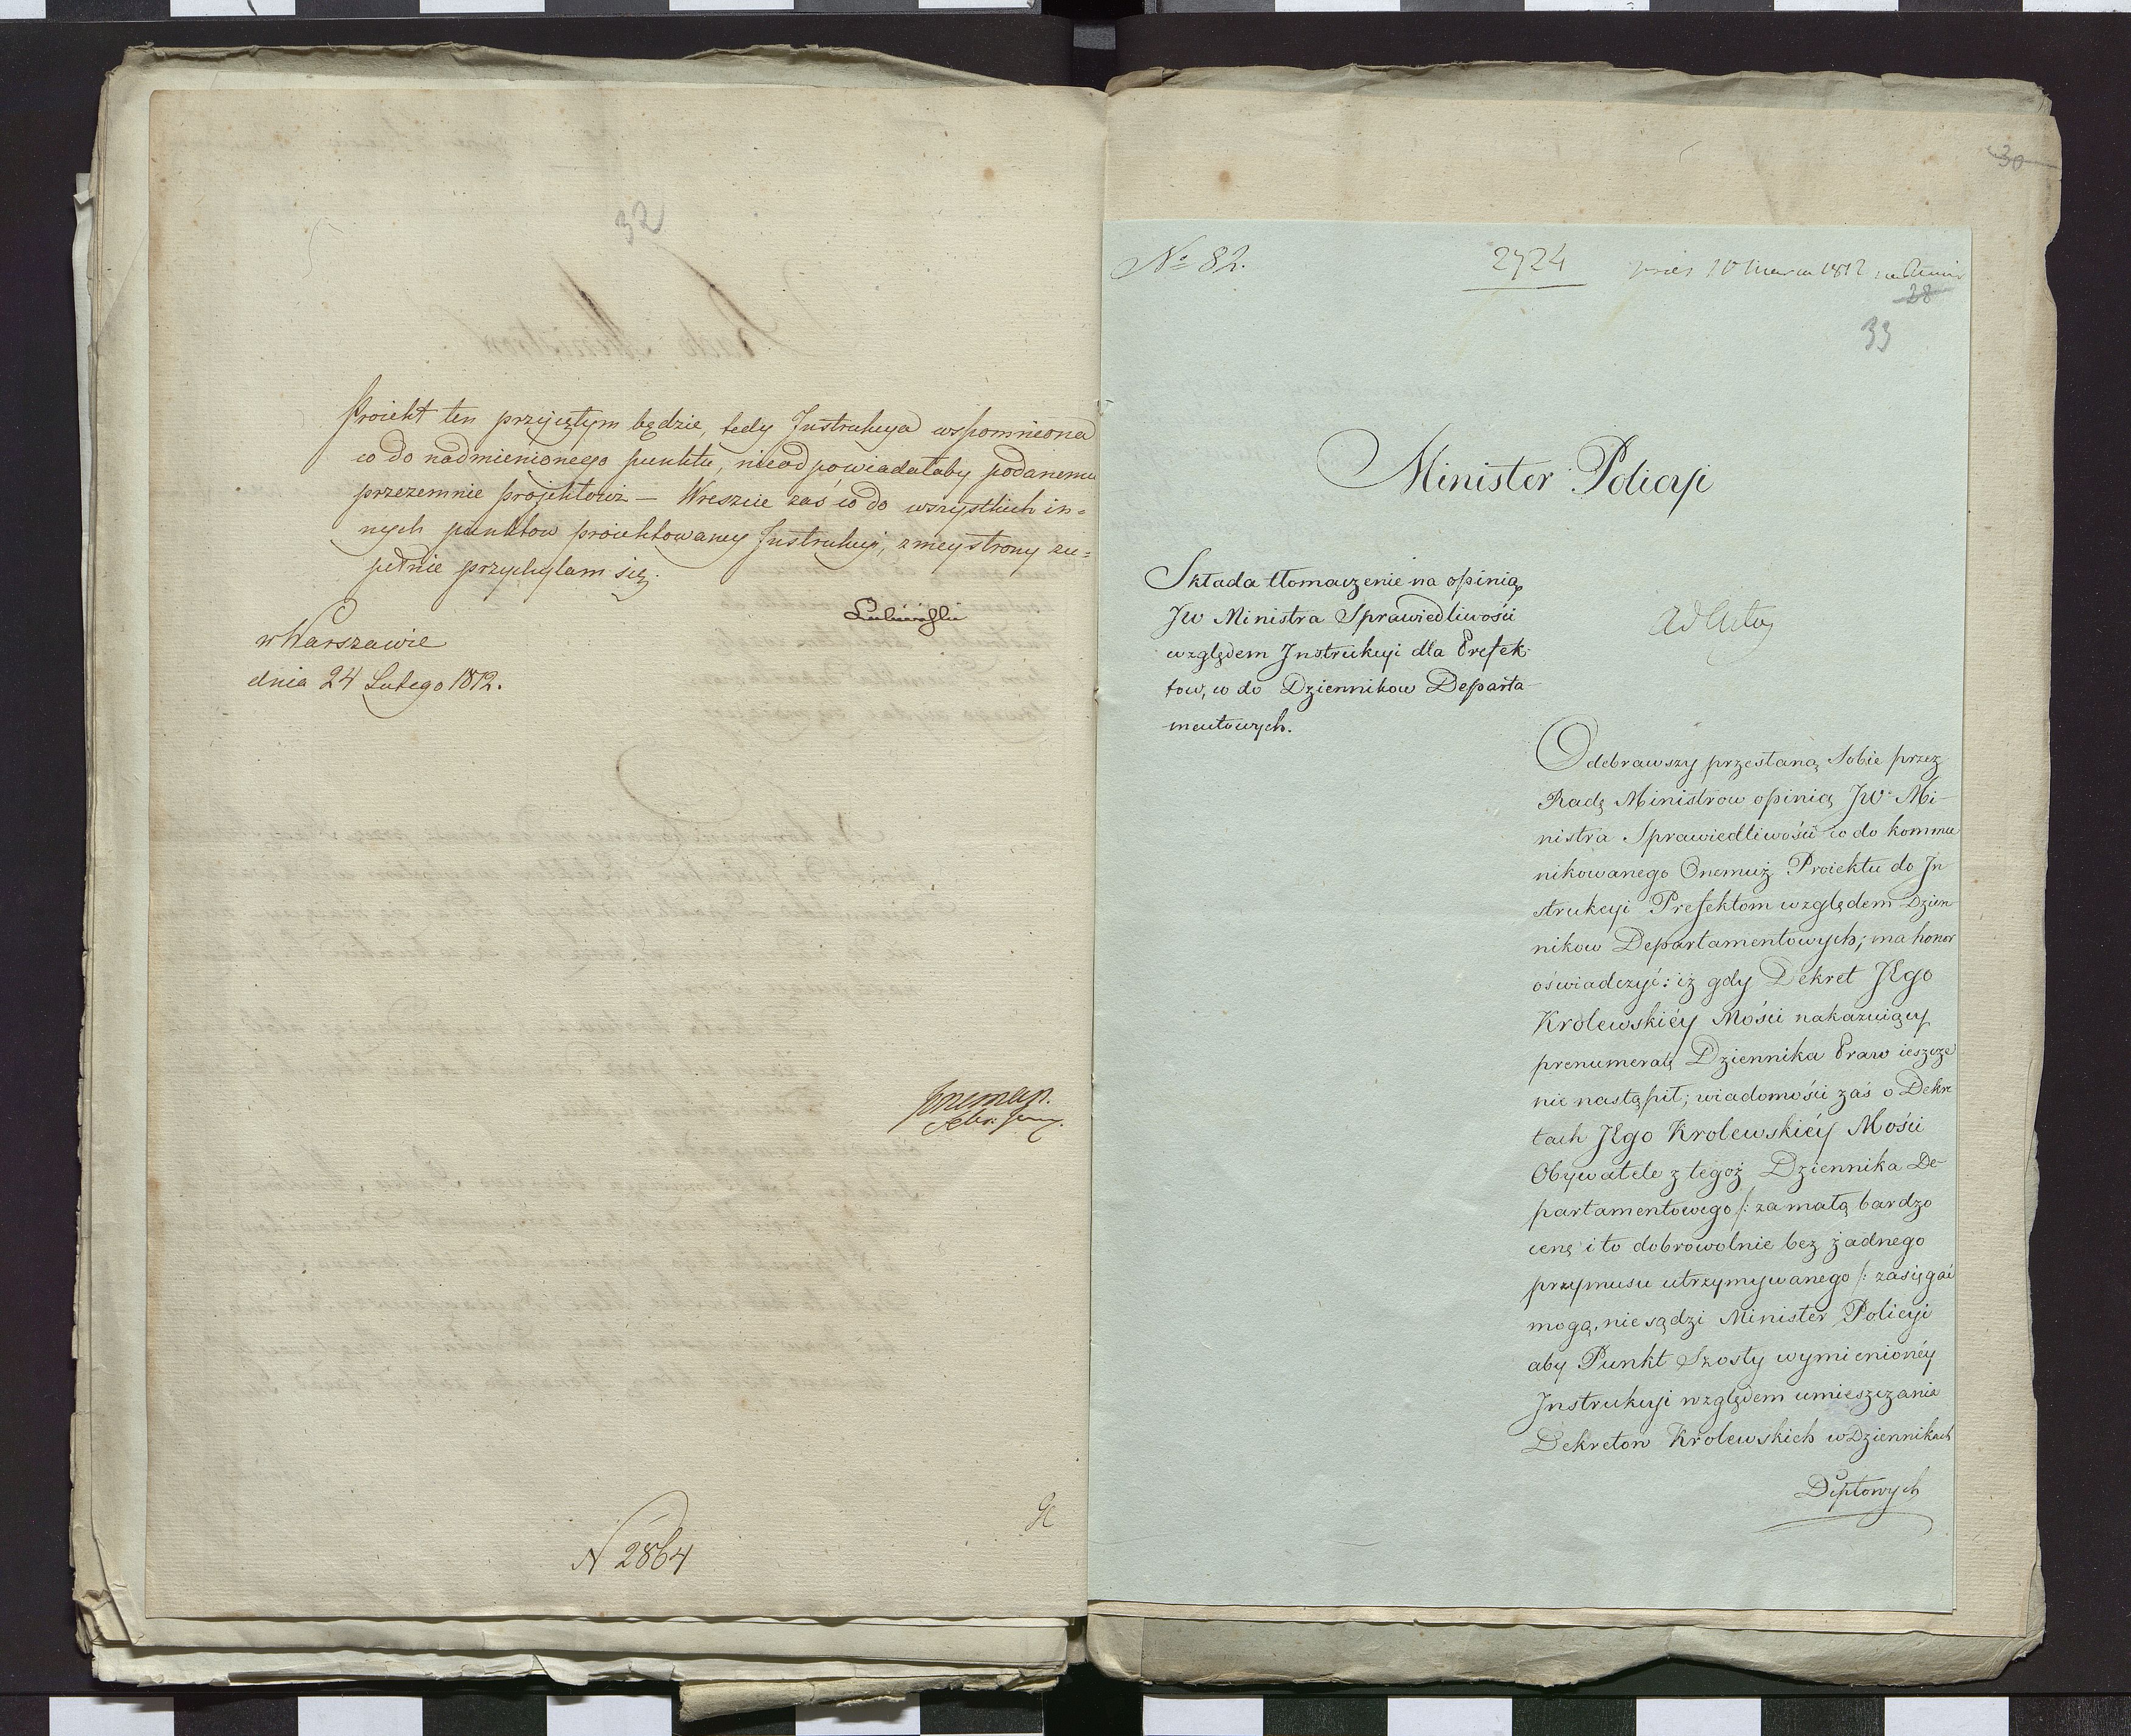 32
Proiekt ten przyiętym będzie, tedy Instrukcya wspomniona
co do nadmienionego punktu, nieodpowiadałaby podanemu
przezemnie projektowi — Wreszcie zaś co do wszystkich in=
nych punktow proiektowaney Instrukcyi, z mey strony zu=
pełnie przychylam się.
Lubieński
w Warszawie
dnia 24 Lutego 1812.
N 2864
30
No 82.
2724
10 Marca 1812
28
33
Minister Policyi
Składa tłomaczenie na opinią
JW Ministra Sprawiedliwości
względem Instrukcyi dla Prefek-
tow, co do Dziennikow Departa-
mentowych.
ad Acta
Odebrawszy przesłaną Sobie przez
Radę Ministrow opinią JW Mi-
nistra Sprawiedliwości co do kommu
nikowanego Onemuż Proiektu do In
strukcyi Prefektom względem Dzien
nikow Departamentowych; ma honor
oświadczyć: iż gdy Dekret JEgo
Krolewskiéy Mości nakazuiący
prenumeratę Dziennika Praw ieszcze
nie nastąpił; wiadomości zaś o Dekre
tach JEgo Krolewskiéy Mości
Obywatele z tegoż Dziennika De-
partamentowego /: za małą bardzo
cenę i to dobrowolnie bez żadnego
przymusu utrzymywanego /: zasięgać
mogą, nie sądzi Minister Policyi
aby Punkt Szosty wymienionéy
Instrukcyi względem umieszczania
Dekretow Krolewskich w Dziennikach
Deptowych